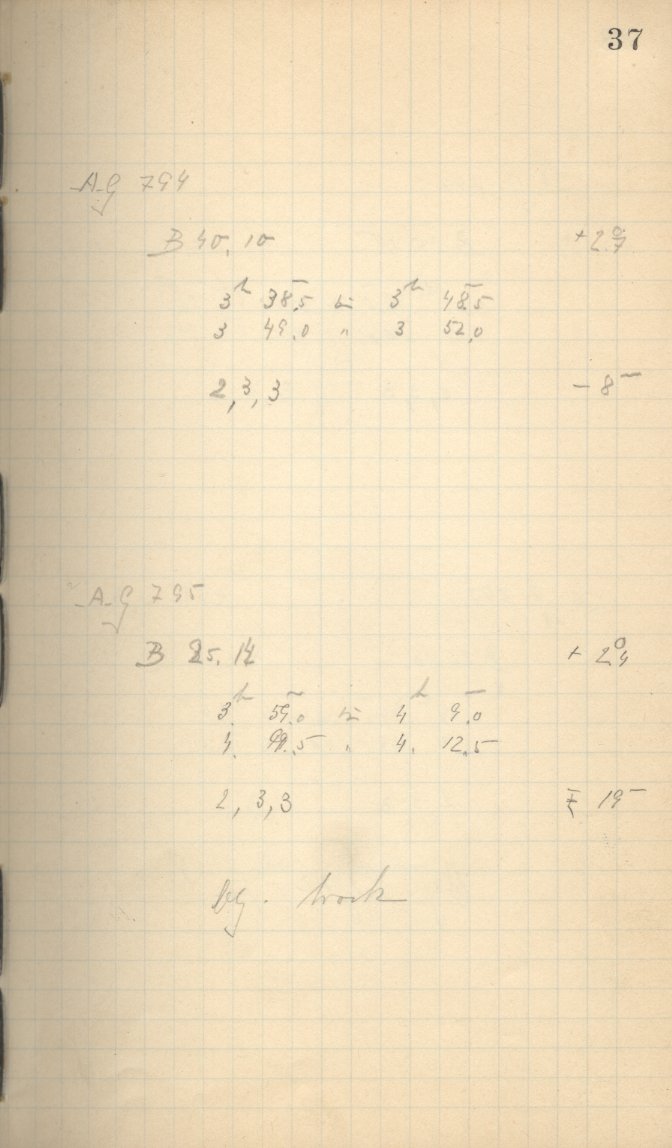 37
AG 794
B 40.10 +2°.7
3h 38m.5 bis 3h 48m.5
3 49.0 " 3 52.0
2, 3, 3 - 8m
AG 795
B 25.14 + 2°.4
3h 59m.0 bis 4h 9m.0
4. 9.5 " 4. 12.5
2, 3, 3 19m